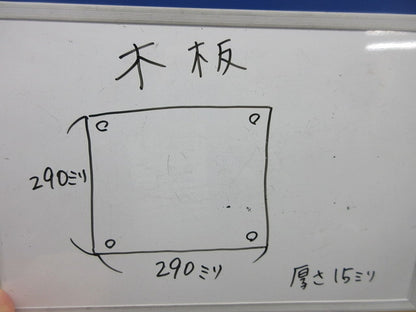 木板
290ミリ
290ミリ
厚さ15ミリ